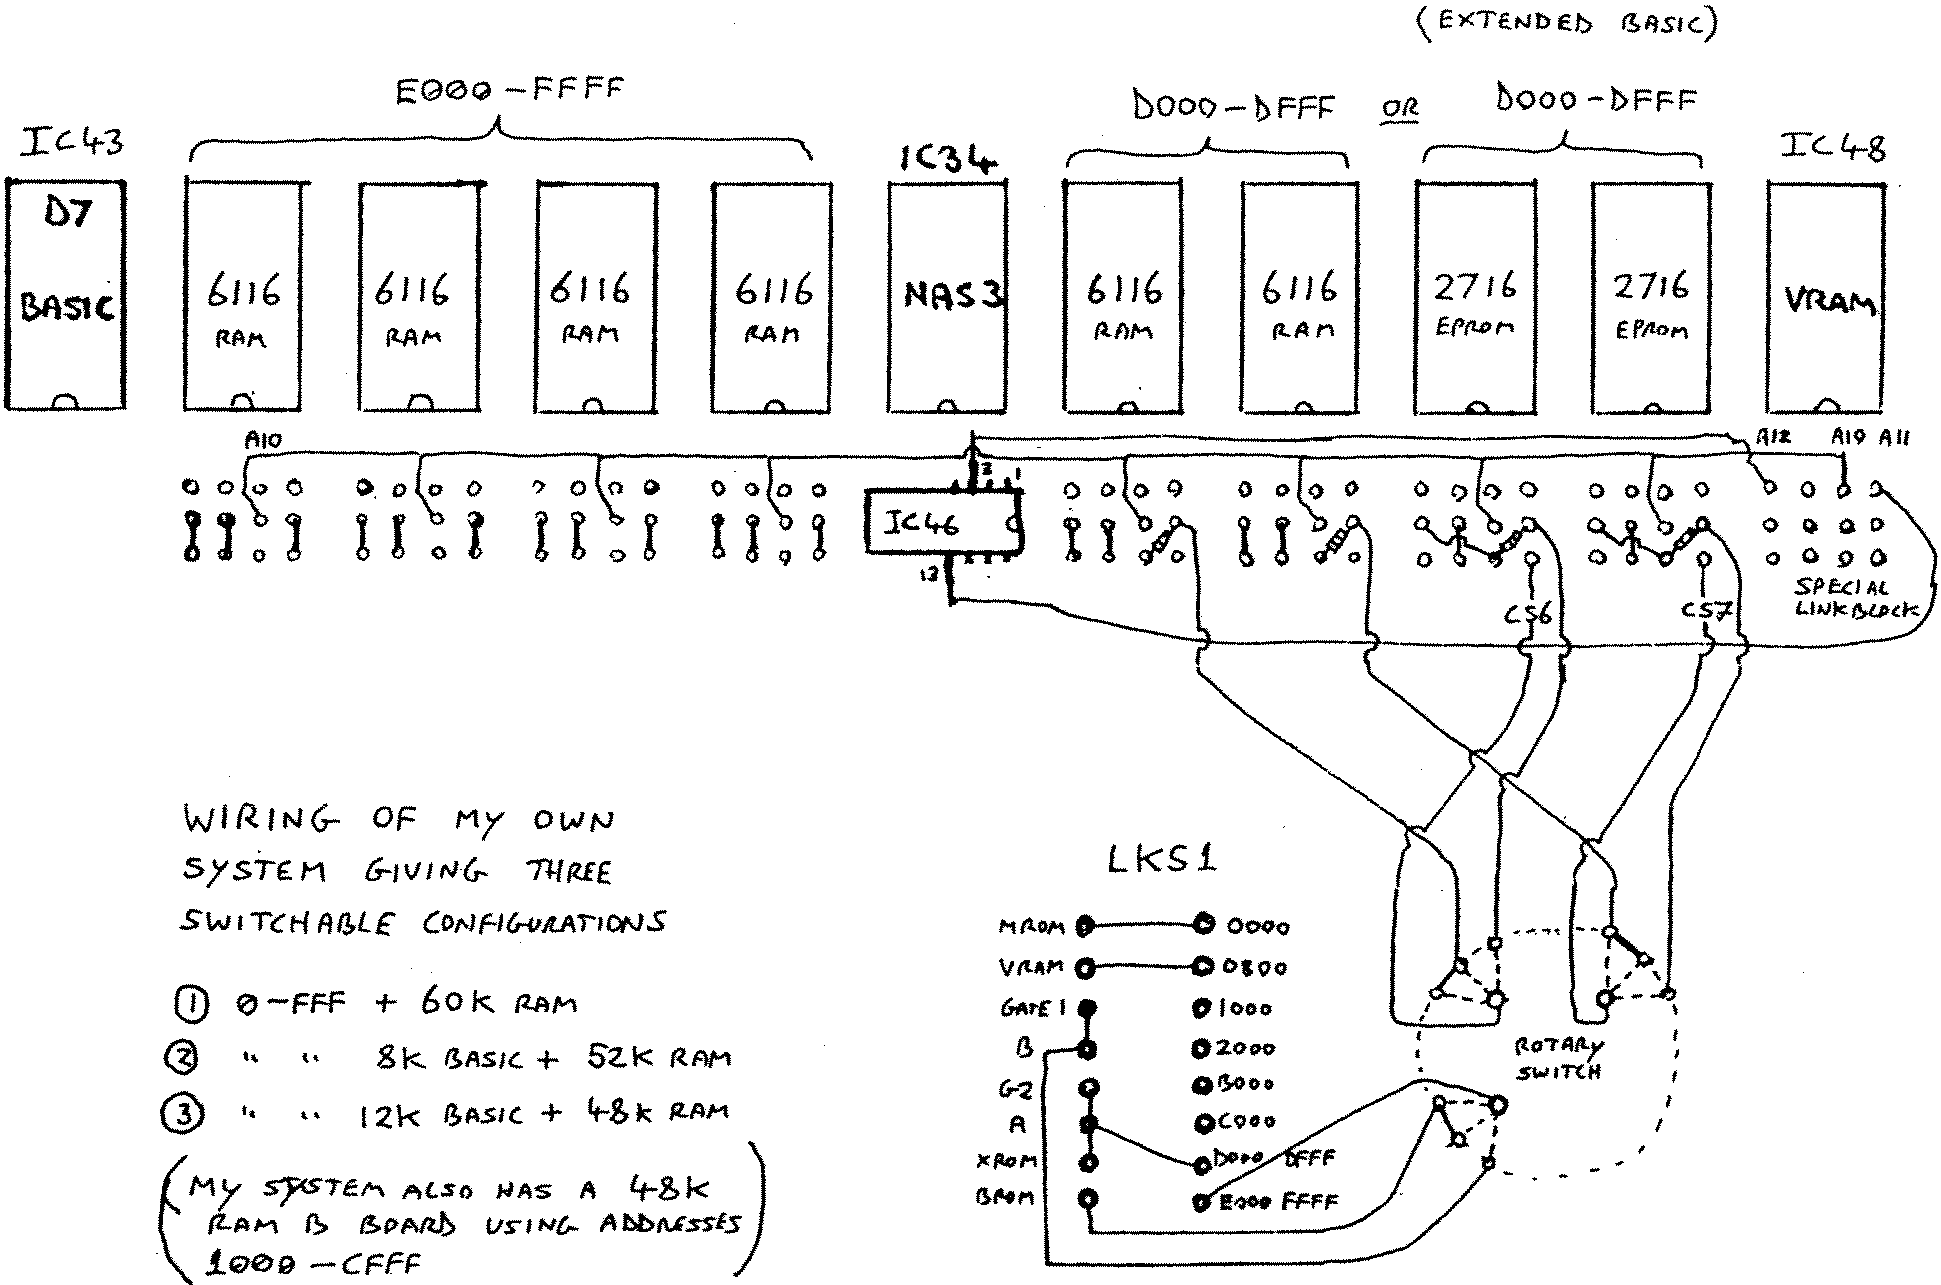 (EXTENDED BASIC)
E000-FFFF
D000-DFFF OR D000-DFFF
IC43
IC34
IC48
D7
BASIC
6116
RAM
6116
RAM
6116
RAM
6116
RAM
NAS3
6116
RAM
6116
RAM
2716
EPROM
2716
EPROM
VRAM
A10
A12 A10 A11
2 1
IC46
13
SPECIAL
LINKBLOCK
CS6
CS7
WIRING OF MY OWN
SYSTEM GIVING THREE
SWITCHABLE CONFIGURATIONS
① 0-FFF + 60K RAM
② " " 8K BASIC + 52K RAM
③ " " 12K BASIC + 48K RAM
(MY SYSTEM ALSO HAS A 48K
RAM B BOARD USING ADDRESSES
1000-CFFF)
LKS1
MROM 0000
VRAM 0800
GATE 1 1000
B 2000
G2 B000
A C000
XROM D000 DFFF
BROM E000 FFFF
ROTARY
SWITCH